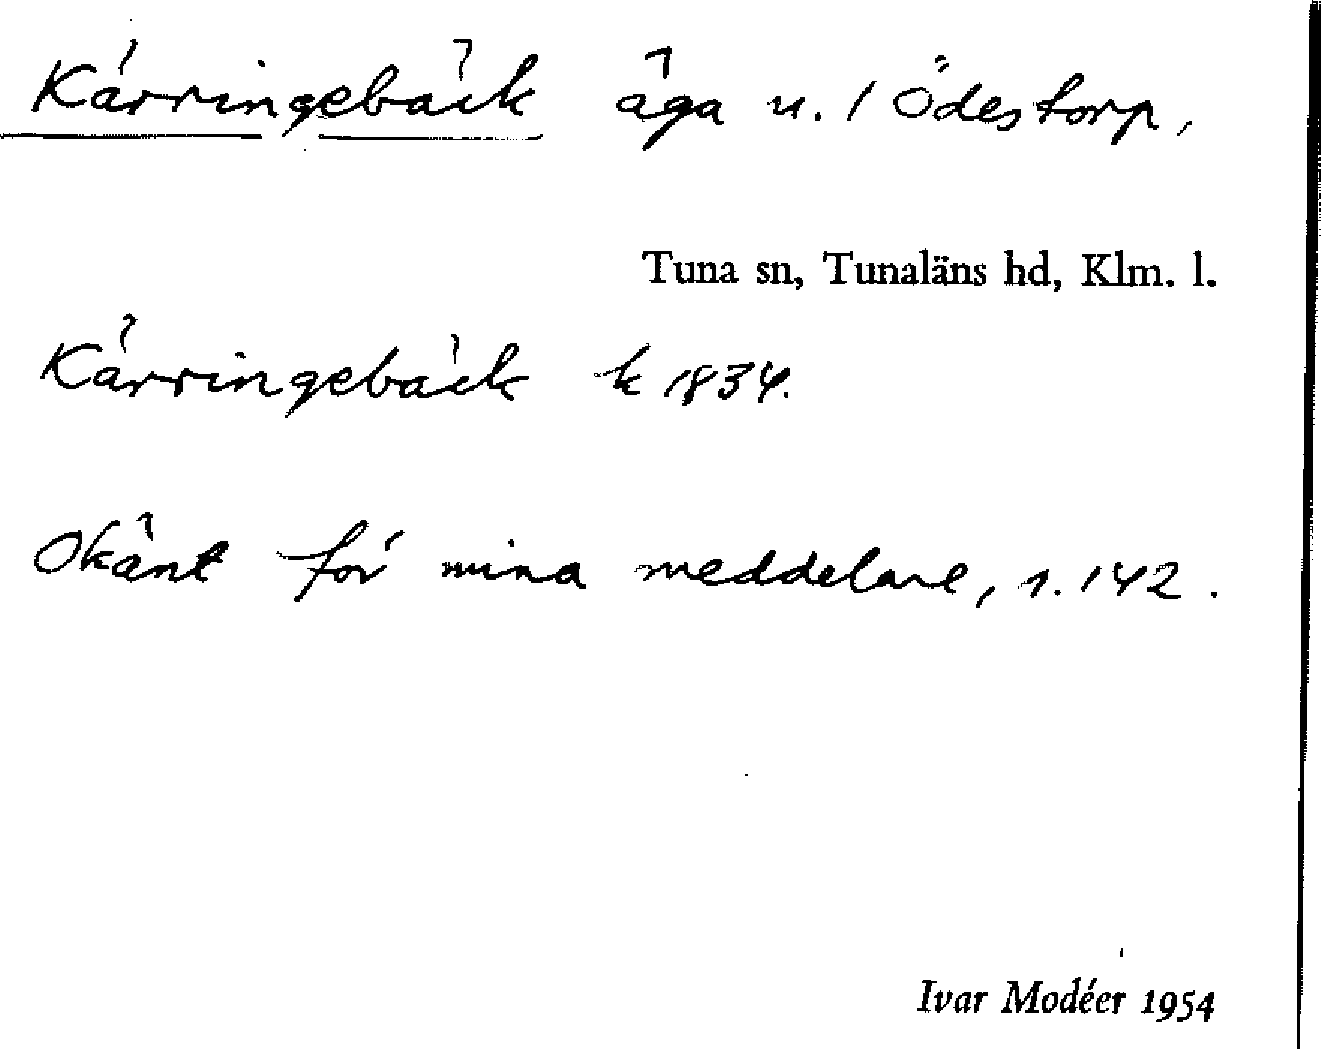 Kärringebäck äga u. / Ödestorp,
Tuna sn, Tunaläns hd, Klm. l.
Kärringebäck k 1834.
Okänt för mina meddelare, s. 142.
Ivar Modéer 1954